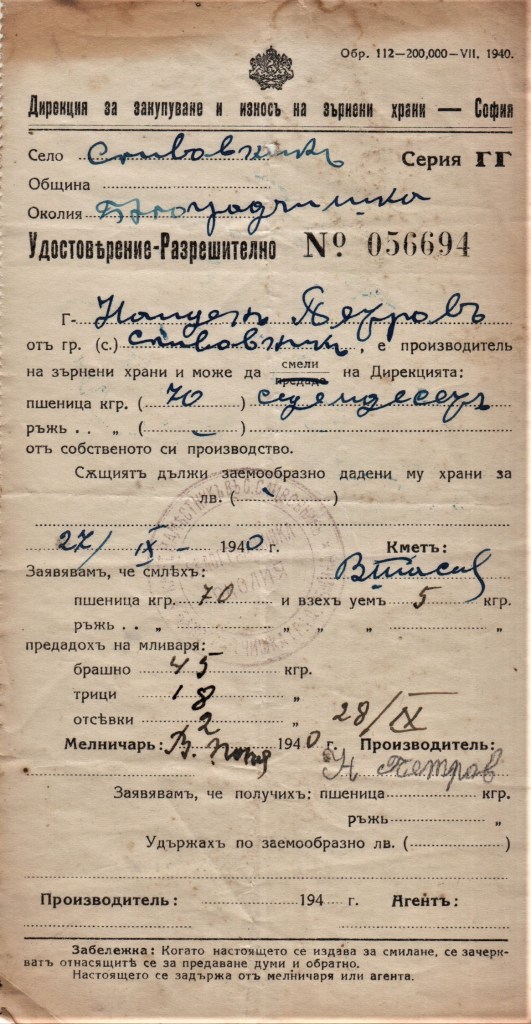 Обр. 112—200,000—VII. 1940.
Дирекция за закупуване и износъ на зърнени храни — София
Село Сливовникъ Серия ГГ
Община
Околия Бѣлоградчишка
Удостовѣрение-Разрешително № 056694
Г- Найденъ Петровъ
отъ гр. (с.) Сливовникъ, е производитель
на зърнени храни и може да смели предаде на Дирекцията:
пшеница кгр. (70) седемдесеть
ръжь . . „ ( – ) –
отъ собственото си производство.
Сѫщиятъ дължи заемообразно дадени му храни за
лв. ( - )
27/IX - 1940 г. Кметъ:
Заявявамъ, че смлѣхъ:
пшеница кгр. 70 и взехъ уемъ 5 кгр.
ръжь . . „ „ „ „ „
предадохъ на мливаря:
брашно 45 кгр.
трици 18 „
отсѣвки 2 „ 28/IX
Мелничарь: В. 1940 г. Производитель:
Н Петров
Заявявамъ, че получихъ: пшеница кгр.
ръжь „
Удържахъ по заемообразно лв. ( )
Производитель: 194 г. Агентъ:
Забележка: Когато настоящето се издава за смилане, се зачерк-
ватъ отнасящитѣ се за предаване думи и обратно.
Настоящето се задържа отъ мелничаря или агента.